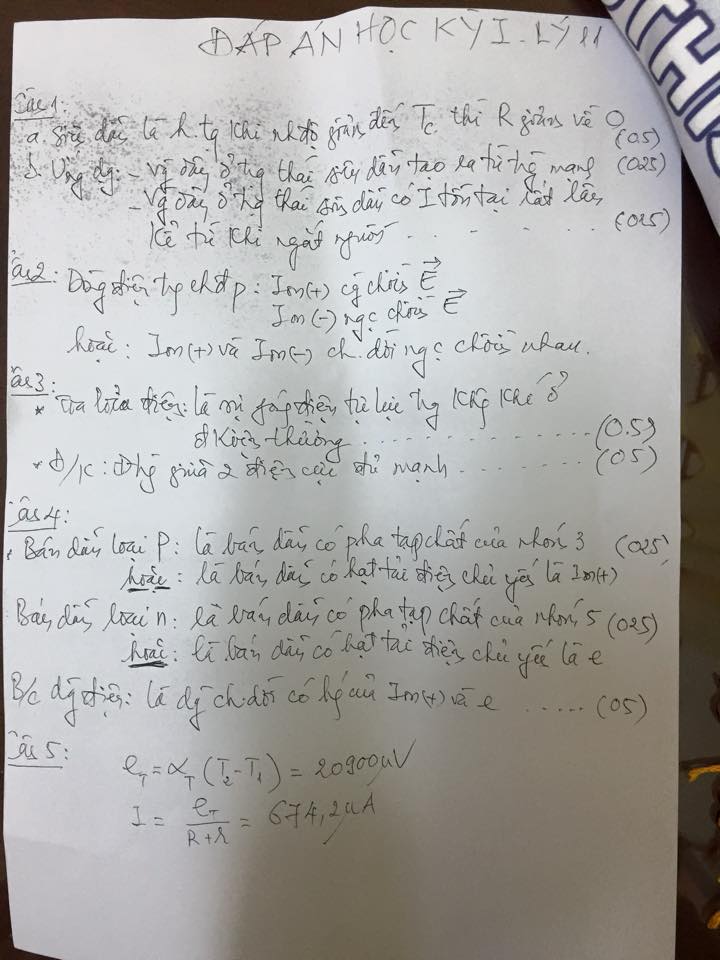 ĐÁP ÁN HỌC KỲ I - LÝ 11
Câu 1:
a. Siêu dẫn là h.tg khi nhđộ giảm đến Tc thì R giảm về 0 (0.5)
b. Ứng dg: - Vg dây ở tg thái siêu dẫn tạo ra từ trg mạnh (025)
- Vg dây ở tg thái siêu dẫn có I tồn tại rất lâu
kể từ khi ngắt nguồn . . - - . - - (025)
Câu 2: Dòng điện tg chất p: Ion(+) cg chiều E→
Ion(-) ngc chiều E→
hoặc: Ion(+) và Ion(-) ch.dời ngc chiều nhau.
Câu 3:
* Tia lửa điện: là sự phóg điện tự lực tg khg khí ở
đ kiện thường . . . . . . . . . . (0.5)
* Đ/K: Đ trg giữa 2 điện cực đủ mạnh - . . . . . . (05)
Câu 4:
. Bán dẫn loại P: là bán dẫn có pha tạp chất của nhóm 3 (025)
hoặc: là bán dẫn có hạt tải điện chủ yếu là Ion(+)
Bán dẫn loại n: là bán dẫn có pha tạp chất của nhóm 5 (025)
hoặc: là bán dẫn có hạt tải điện chủ yếu là e
B/c dg điện: là dg ch.dời có hg của Ion(+) và e ..... (05)
Câu 5:
eT = αT (T2 - T1) = 20900 μV
I = eT / (R + r) = 674,2 μA